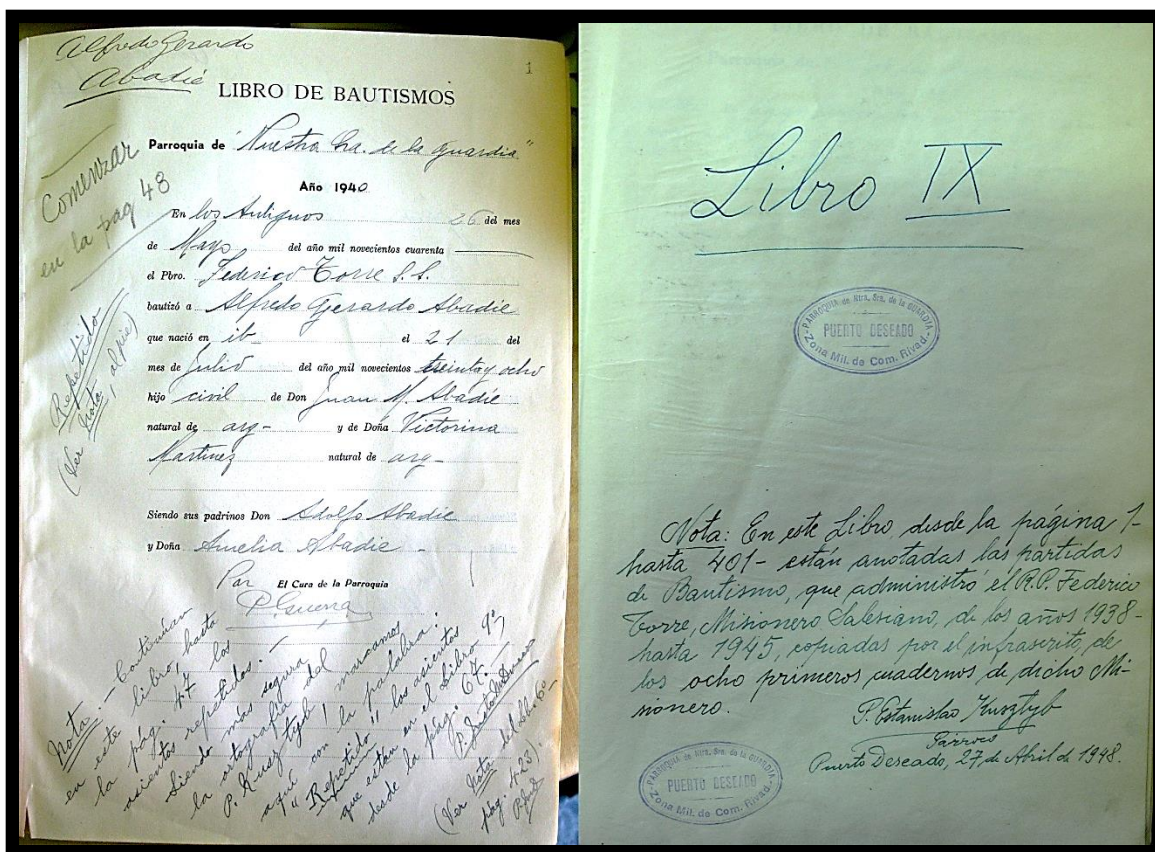 Alfredo Gerardo
Abadie
1
LIBRO DE BAUTISMOS
Parroquia de "Nuestra Sra. de la Guardia"
Año 1940
En los Antiguos 26 del mes
de Mayo del año mil novecientos cuarenta
el Pbro. Federico Torre S.S.
bautizó a Alfredo Gerardo Abadie
que nació en ib el 21 del
mes de Julio del año mil novecientos treinta y ocho
hijo civil de Don Juan M. Abadie
natural de arg- y de Doña Victorina
Martinez natural de arg-
Siendo sus padrinos Don Adolfo Abadie
y Doña Amelia Abadie -
Por El Cura de la Parroquia
P. Guerra
Comenzar
en la pag 48
Repetido
(Ver Nota, al pie)
Nota: - Continúan
en este libro, hasta
la pág. 47 los
asientos repetidos. -
Siendo mas segura
la ortografía del
P. Kusztyb, marcamos
aquí con la palabra:
"Repetido" los asientos
que están en el Libro 9º,
desde la pág. 67. -
(Ver Nota del Libro 6º
pág. 423).
Libro IX
PARROQUIA de Ntra. Sra. de la GUARDIA
PUERTO DESEADO
Zona Mil. de Com. Rivad.
Nota: En este Libro, desde la página 1-
hasta 401- están anotadas las partidas
de Bautismo, que administró el R.P. Federico
Torre, Misionero Salesiano, de los años 1938-
hasta 1945, copiadas por el infrascrito, de
los ocho primeros cuadernos de dicho Mi-
sionero.
P. Estanislao Kusztyb
Párroco
Puerto Deseado, 27 de Abril de 1948.
PARROQUIA de Ntra. Sra. de la GUARDIA
PUERTO DESEADO
Zona Mil. de Com. Rivad.